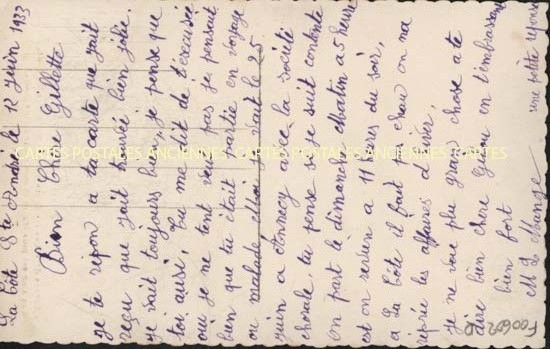 La Côte St André le 12 Juin 1933
Bien Chère Gillette
Je te répon a ta carte que jait
reçu que jait trouvée bien jolie.
Je vait toujours bien, je pense que
toi ausi, Tu me dit de t'excusée
oui je ne tent veut pas je pensait
bien que tu était partie en voyage
ou malade Moi je vait le 25
juin a Annecy avec la société
chorale, tu pense si je suit contente
On part le dimanche Matin a 5 heures
est on revien a 11 heures du soir,
a La Côte il fait pas chau on na
reprie les affaires d'hiver,
Je ne voie plu gran chose a te
dire bien chere Gous en t'embrassant
bien fort
M L Mange
une petite
CARTES POSTALES ANCIENNES CARTES POSTALES ANCIENNES CARTES POSTALES ANCIENNES